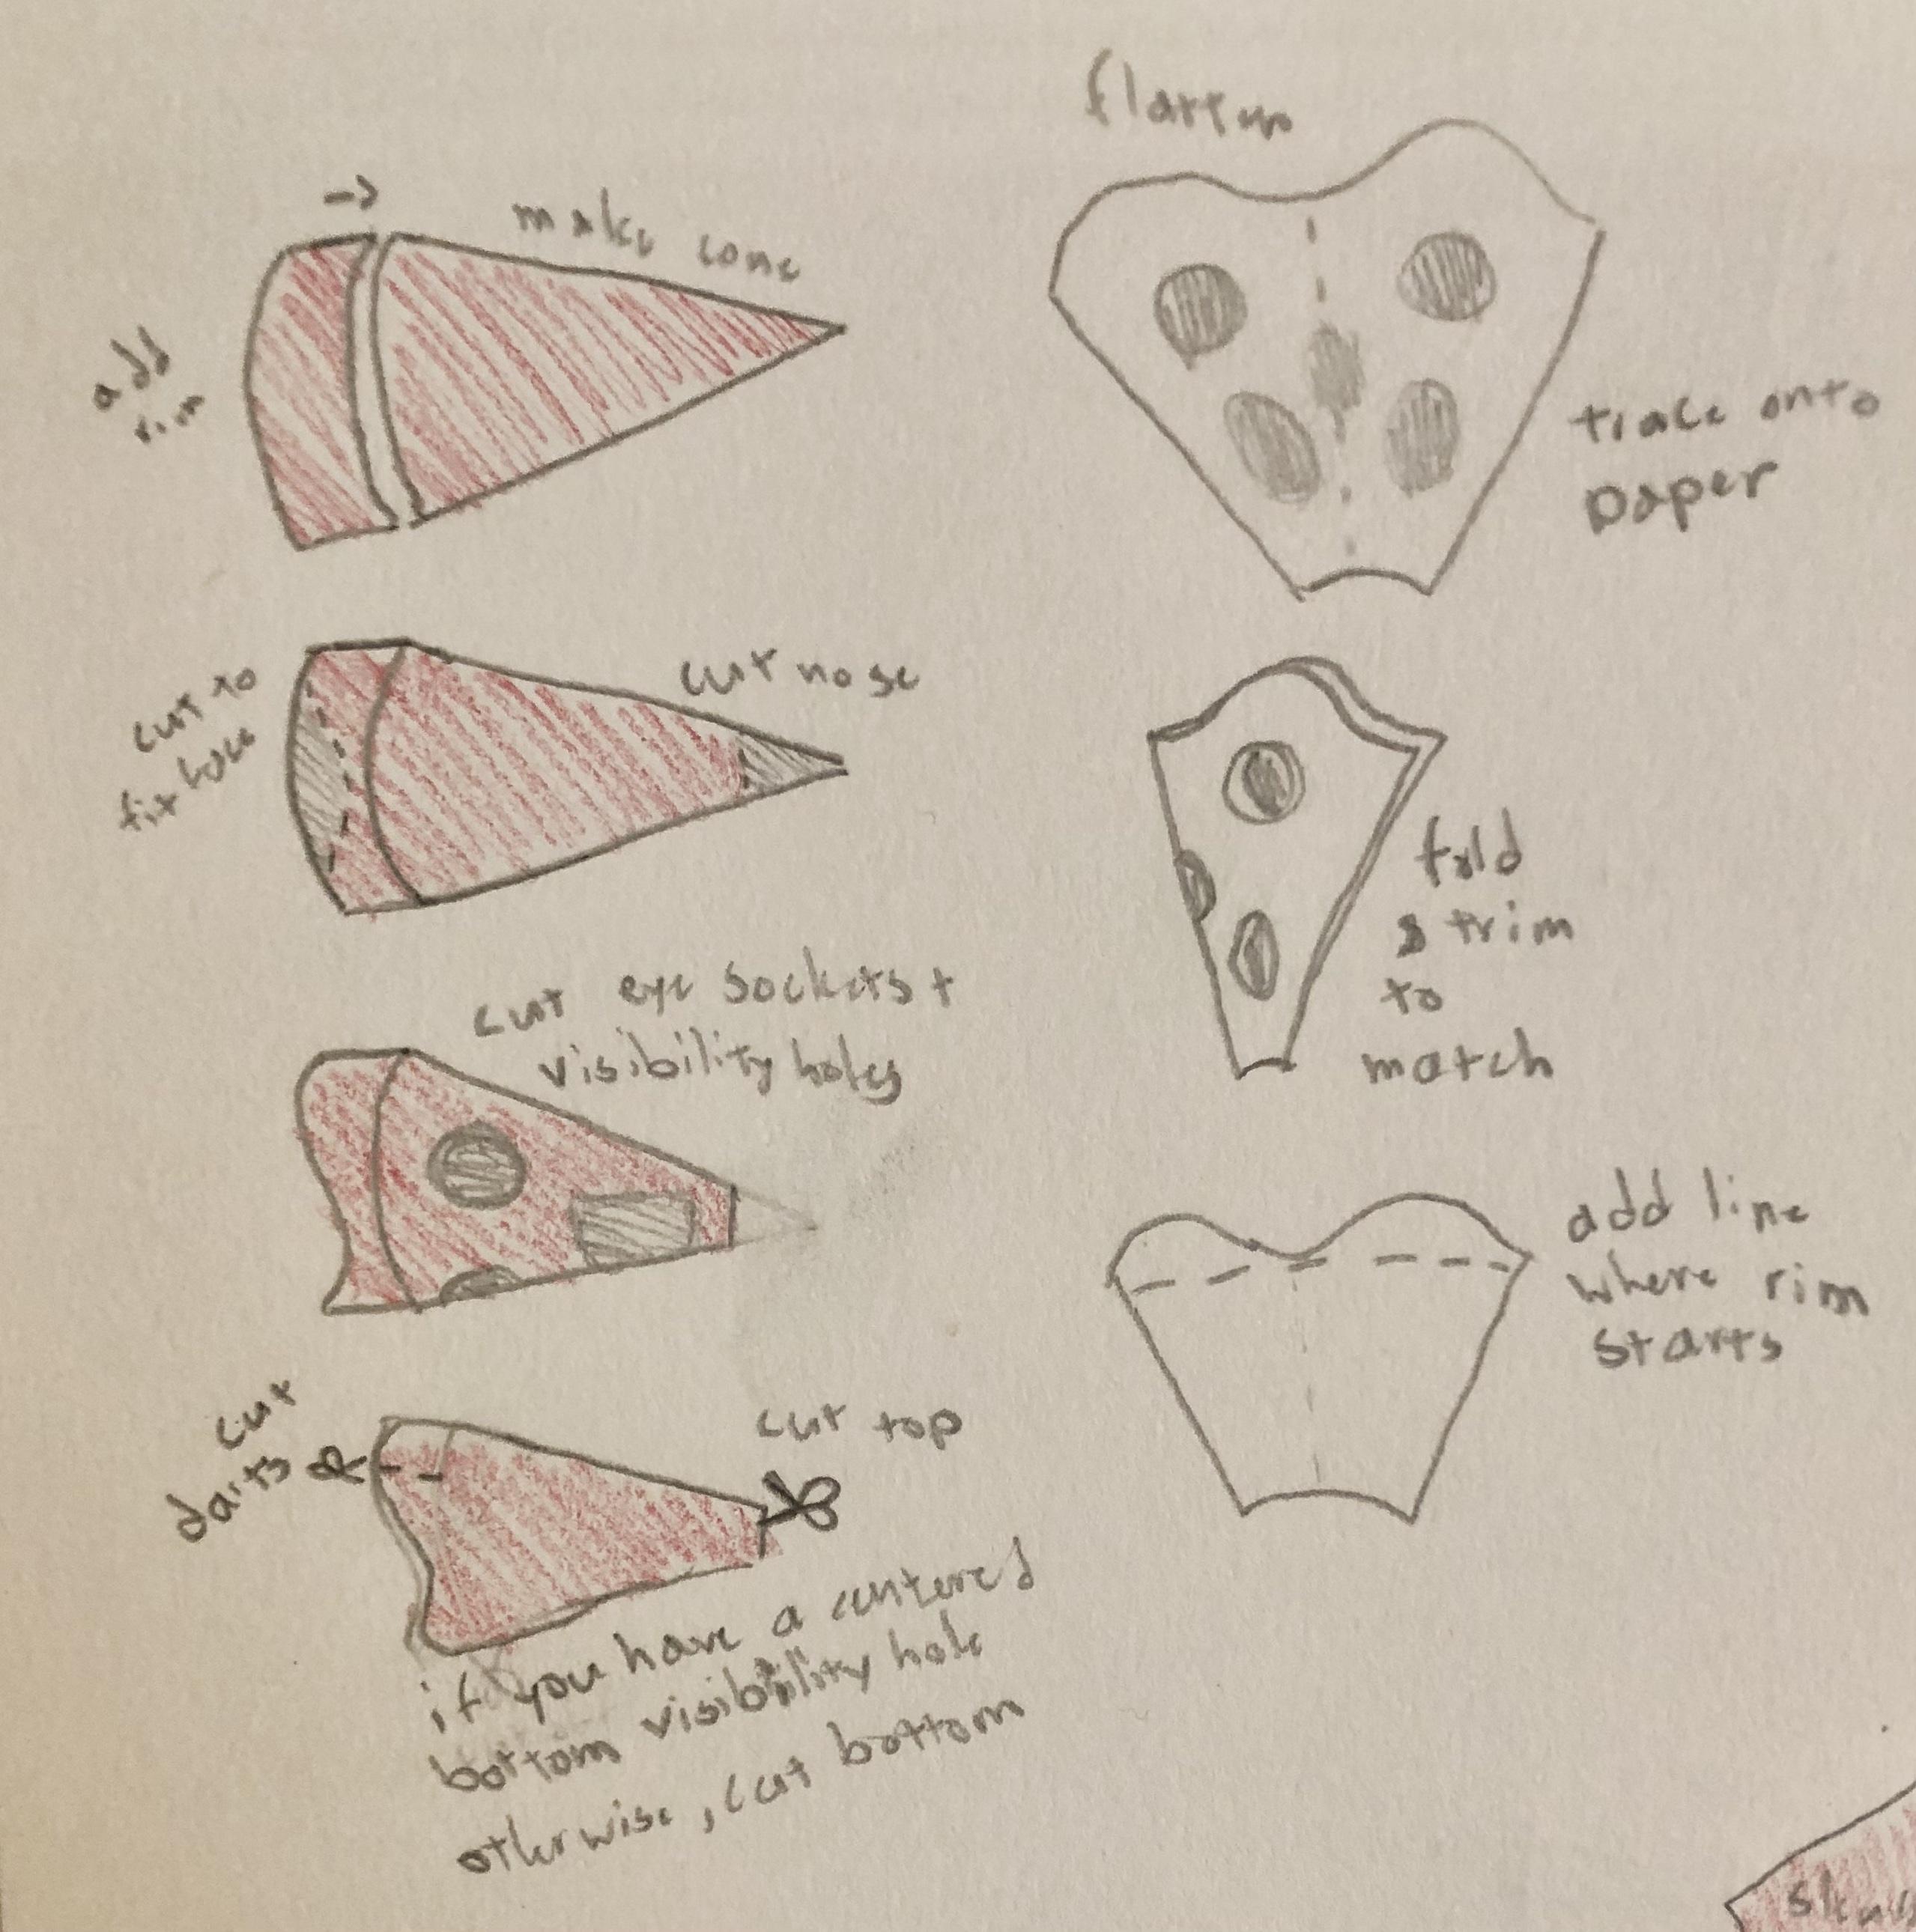 make cone
add
rim
cut to
fit face
cut nose
cut eye sockets +
visibility holes
cut
darts
cut top
if you have a centered
bottom visibility hole
otherwise, cut bottom
flatten
trace onto
paper
fold
& trim
to
match
add line
where rim
starts